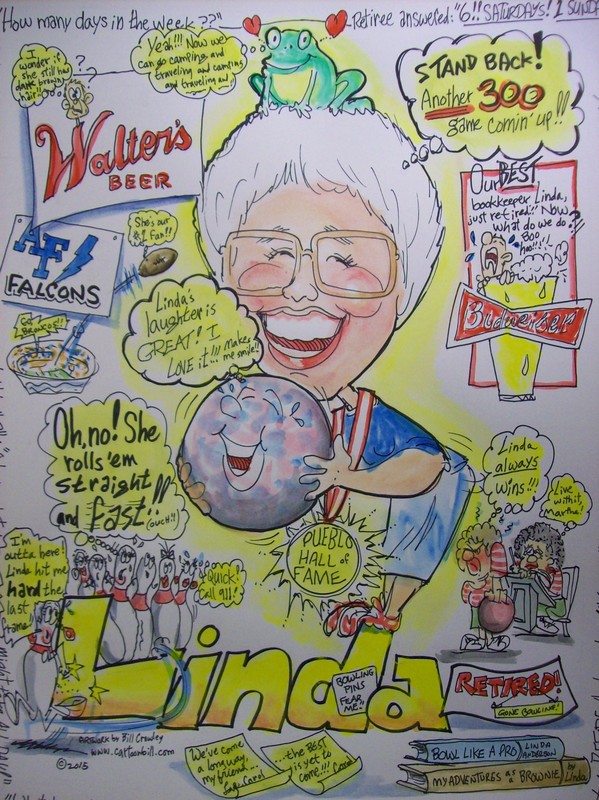 "How many days in the week??"
Retiree answered: "6!! SATURDAYS! 1 SUND
I wonder if she still has dark brown hair!!
?
?
Yeah!!! Now we
can go camping, and
traveling and camping
and traveling and
STAND BACK!
Another 300
game comin' up!!
Walter's
BEER
Our BEST
bookkeeper Linda,
just retired!! Now
what do we do??
Boo
hoo!!!
Budweiser
AF
FALCONS
She's our
#1 Fan!!
Go
Broncos!!
Linda's
laughter is
GREAT! I
LOVE it!!! Makes
me smile!!
Oh, no! She
rolls 'em
straight!!
and fast!!
(ouch!!)
Linda
always
wins!!!
Live
with it,
martha!
PUEBLO
HALL of
FAME
I'm
outta here!
Linda hit me
hard the
last
frame!
Quick!
Call 911!
Linda
BOWLING
PINS
FEAR
ME!!
RETIRED!
GONE BOWLING!
Artwork by Bill Crowley
www.cartoonbill.com
©2015
We've come
a long way,
my friend...
Carol
...the BEST
is yet to
come!!! Carol
BOWL LIKE A PRO
LINDA
ANDERSON
MY ADVENTURES as a BROWNIE
by
Linda